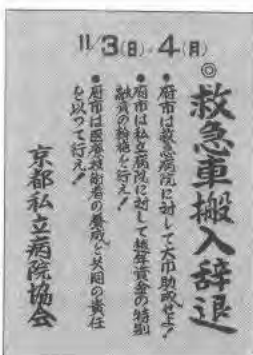 11/3(日)・4(月)
◎救急車搬入辞退
●府市は救急病院に対して大巾助成せよ!
●府市は私立病院に対して越年資金の特別
融資の枠拡を行え!
●府市は医療技術者の養成と共同の責任
を以って行え!
京都私立病院協会